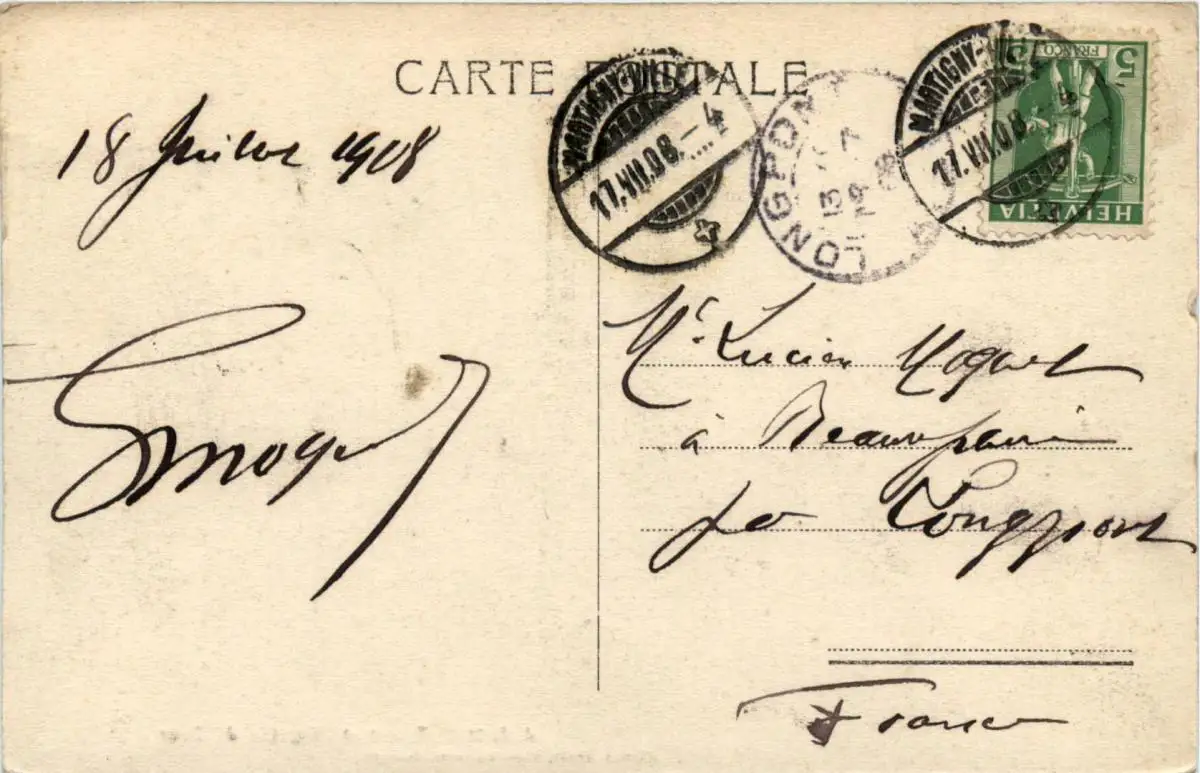 CARTE POSTALE
18 Juillet 1908
MARTIGNY-VILLE
17.VII.08.-4
LONGPONT
MARTIGNY-VILLE
17.VII.08.-4
5 FRANCO 5
HELVETIA
Mr. Lucien Moquet
à Beaurepaire
par Longpont
France
Moquet